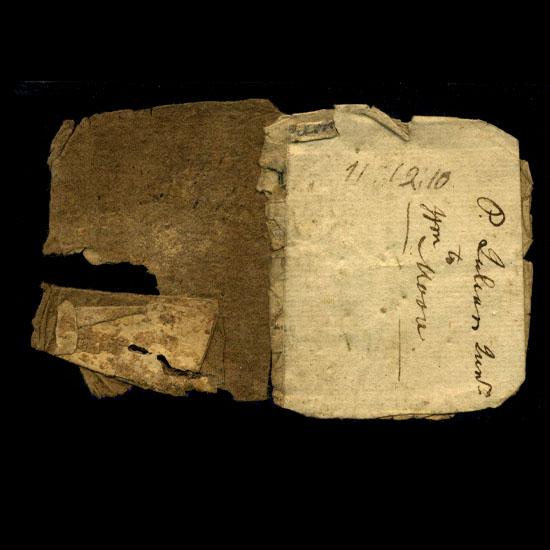 11.12.10
P. Julian Junr
to
Wm Moore.